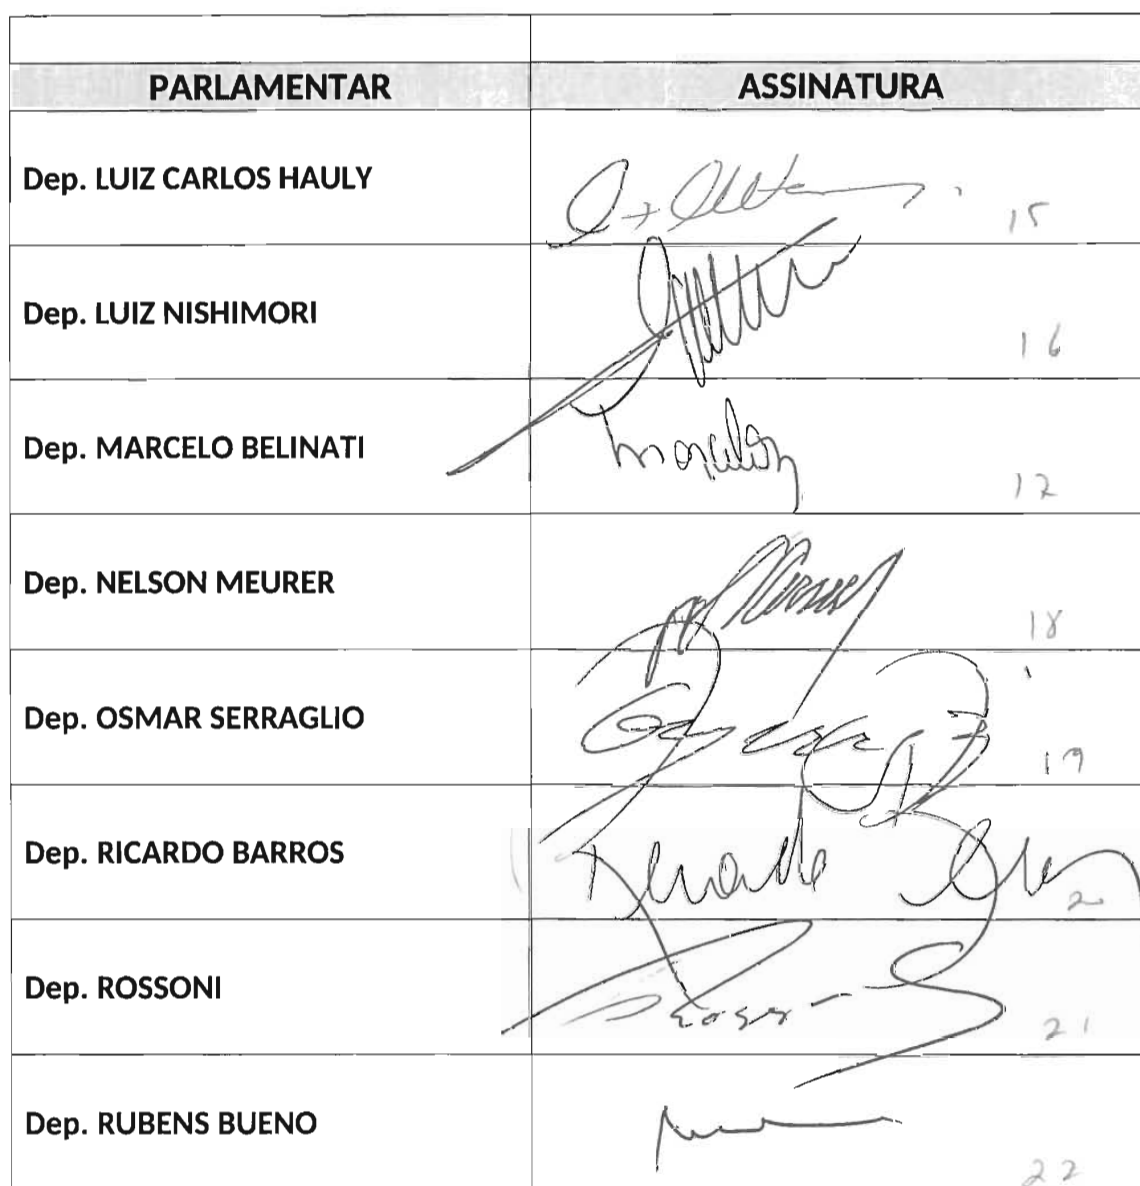 PARLAMENTAR ASSINATURA
Dep. LUIZ CARLOS HAULY
15
Dep. LUIZ NISHIMORI
16
Dep. MARCELO BELINATI
17
Dep. NELSON MEURER
18
Dep. OSMAR SERRAGLIO
19
Dep. RICARDO BARROS
20
Dep. ROSSONI
21
Dep. RUBENS BUENO
22